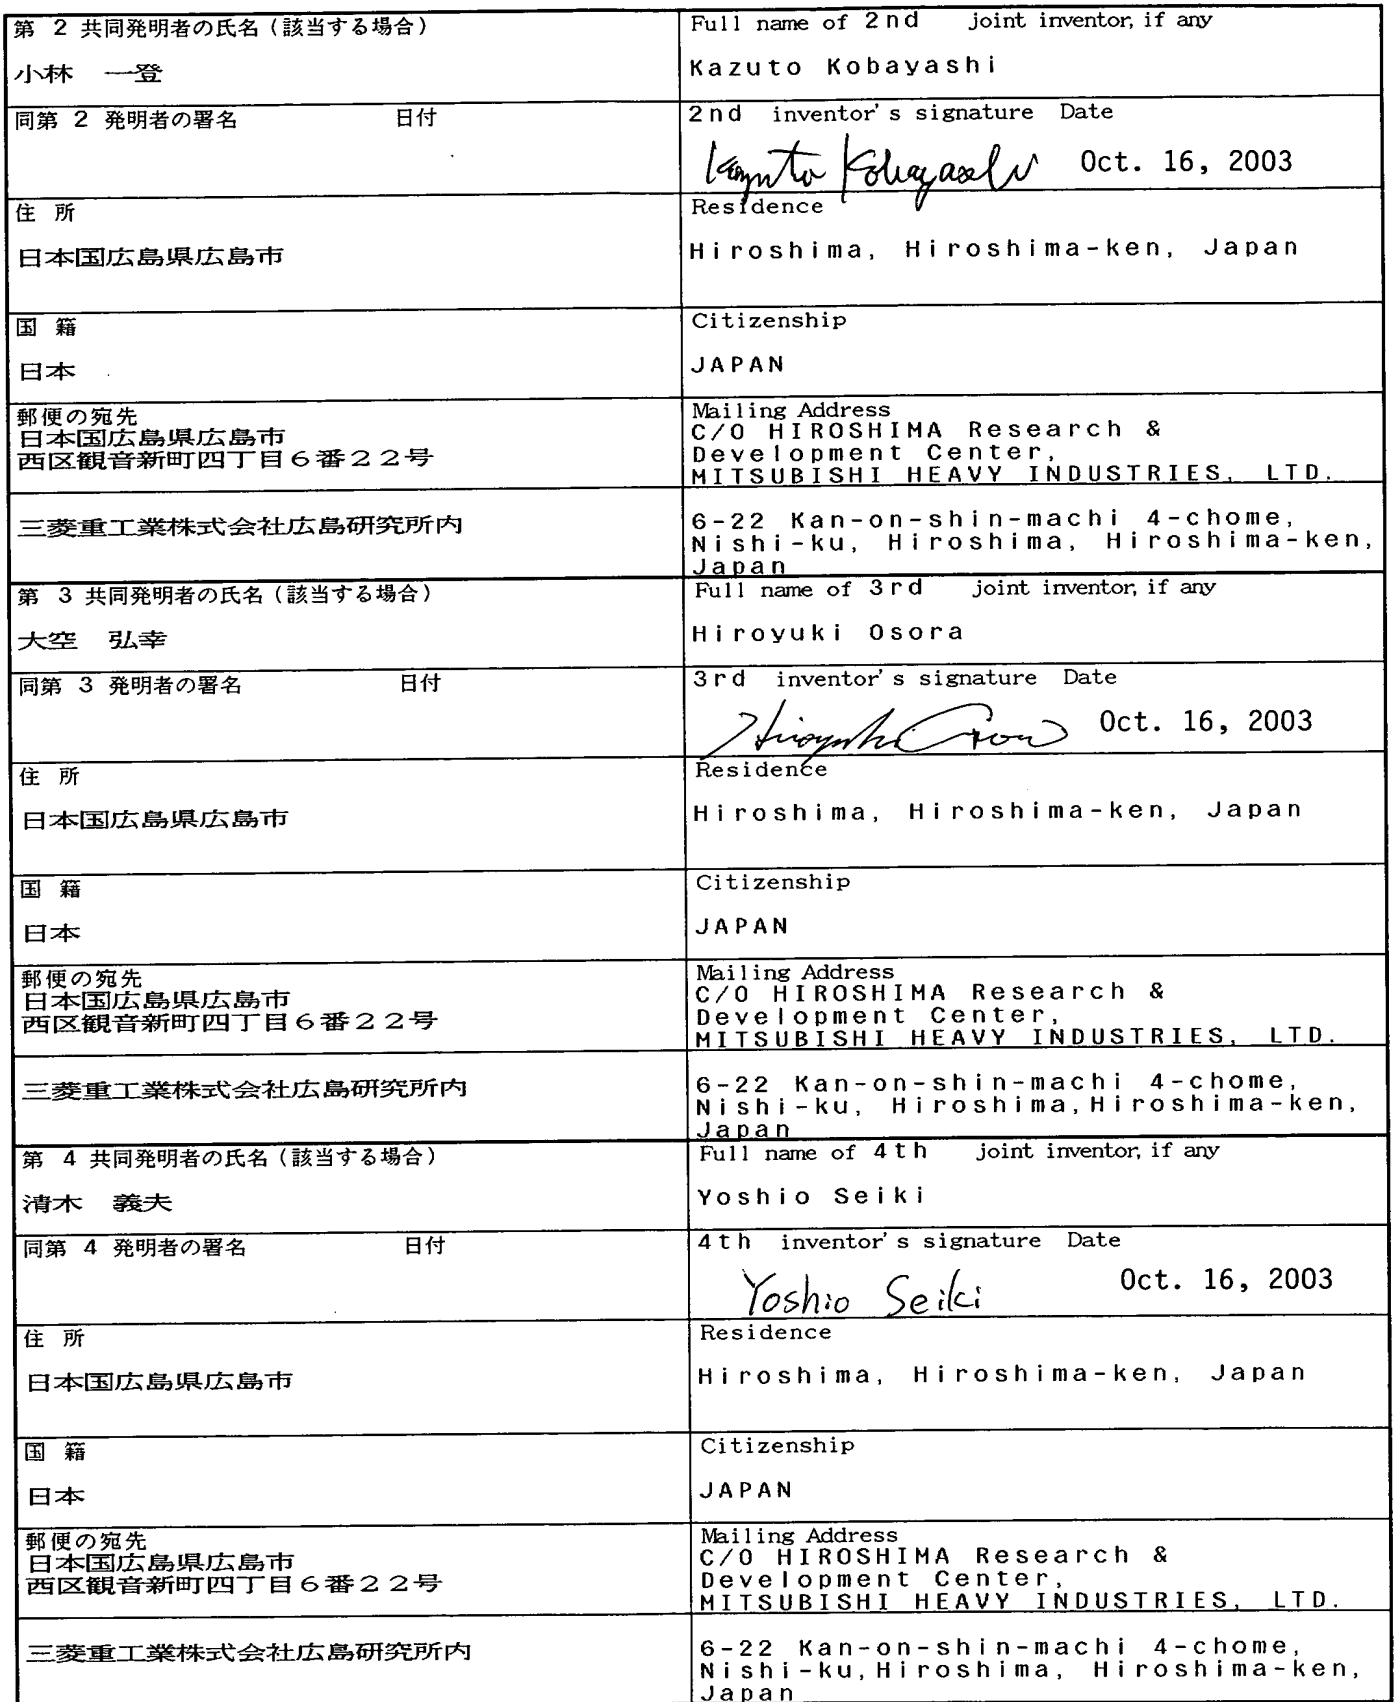 第 2 共同発明者の氏名(該当する場合)
Full name of 2nd joint inventor, if any
小林 一登
Kazuto Kobayashi
同第 2 発明者の署名 日付
2nd inventor's signature Date
Kazuto Kobayashi Oct. 16, 2003
住 所
Residence
日本国広島県広島市
Hiroshima, Hiroshima-ken, Japan
国 籍
Citizenship
日本
JAPAN
郵便の宛先
日本国広島県広島市
西区観音新町四丁目6番22号
Mailing Address
C/O HIROSHIMA Research &
Development Center,
MITSUBISHI HEAVY INDUSTRIES, LTD.
三菱重工業株式会社広島研究所内
6-22 Kan-on-shin-machi 4-chome,
Nishi-ku, Hiroshima, Hiroshima-ken,
Japan
第 3 共同発明者の氏名(該当する場合)
Full name of 3rd joint inventor, if any
大空 弘幸
Hiroyuki Osora
同第 3 発明者の署名 日付
3rd inventor's signature Date
Hiroyuki Osora Oct. 16, 2003
住 所
Residence
日本国広島県広島市
Hiroshima, Hiroshima-ken, Japan
国 籍
Citizenship
日本
JAPAN
郵便の宛先
日本国広島県広島市
西区観音新町四丁目6番22号
Mailing Address
C/O HIROSHIMA Research &
Development Center,
MITSUBISHI HEAVY INDUSTRIES, LTD.
三菱重工業株式会社広島研究所内
6-22 Kan-on-shin-machi 4-chome,
Nishi-ku, Hiroshima,Hiroshima-ken,
Japan
第 4 共同発明者の氏名(該当する場合)
Full name of 4th joint inventor, if any
清木 義夫
Yoshio Seiki
同第 4 発明者の署名 日付
4th inventor's signature Date
Yoshio Seiki Oct. 16, 2003
住 所
Residence
日本国広島県広島市
Hiroshima, Hiroshima-ken, Japan
国 籍
Citizenship
日本
JAPAN
郵便の宛先
日本国広島県広島市
西区観音新町四丁目6番22号
Mailing Address
C/O HIROSHIMA Research &
Development Center,
MITSUBISHI HEAVY INDUSTRIES, LTD.
三菱重工業株式会社広島研究所内
6-22 Kan-on-shin-machi 4-chome,
Nishi-ku,Hiroshima, Hiroshima-ken,
Japan